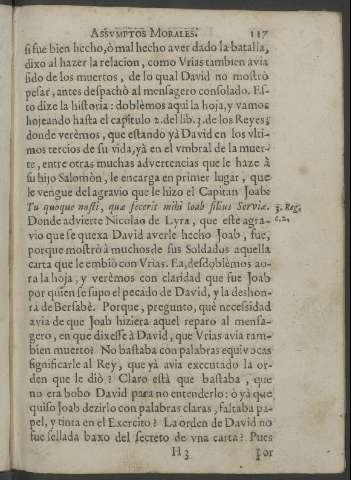 ASSVMPTOS MORALES. 117
si fue bien hecho, ò mal hecho aver dado la batalla,
dixo al hazer la relacion, como Vrias tambien avia
sido de los muertos, de lo qual David no mostrò
pesar, antes despachò al mensagero consolado. Es-
to dize la historia: doblèmos aqui la hoja, y vamos
hojeando hasta el capitulo 2. del lib. 3. de los Reyes;
donde verèmos, que estando yà David en los vlti-
mos tercios de su vida, yà en el vmbral de la muer-
te, entre otras muchas advertencias que le haze à
su hijo Salomòn, le encarga en primer lugar, que
le vengue del agravio que le hizo el Capitan Joab:
Tu quoque nosti, quæ fecerit mihi Ioab filius Serviæ. 3. Reg.
Donde advierte Nicolao de Lyra, que este agra- c. 2.
vio que se quexa David averle hecho Joab, fue,
porque mostrò à muchos de sus Soldados aquella
carta que le embiò con Vrias. Ea, desdoblèmos ao-
ra la hoja, y verèmos con claridad que fue Joab
por quien se supo el pecado de David, y la deshon-
ra de Bersabè. Porque, pregunto, què necessidad
avia de que Joab hiziera aquel reparo al mensa-
gero, en que dixesse à David, que Vrias avia tam-
bien muerto? No bastaba con palabras equivocas
significarle al Rey, que yà avia executado la or-
den que le diò? Claro està que bastaba, que
no era bobo David para no entenderlo: ò yà que
quiso Joab dezirlo con palabras claras, faltaba pa-
pel, y tinta en el Exercito? La orden de David no
fue sellada baxo del secreto de vna carta? Pues
H 3 por